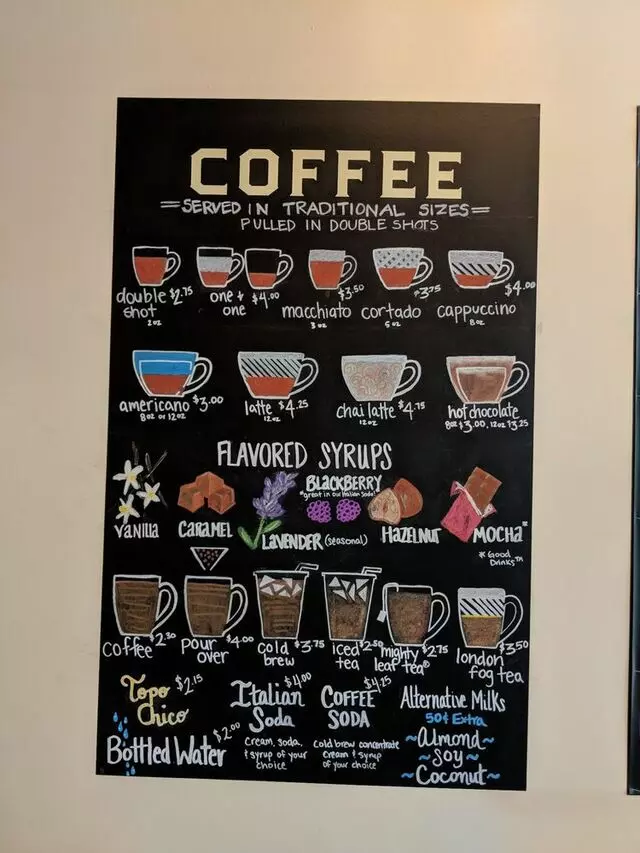 COFFEE
SERVED IN TRADITIONAL SIZES
PULLED IN DOUBLE SHOTS
double shot 2oz $2.75
one + one $4.00
macchiato 3oz $3.50
cortado 5oz $3.75
cappuccino 8oz $4.00
americano $3.00
8oz or 12oz
latte $4.25
12oz
chai latte $4.75
12oz
hot chocolate
8oz $3.00, 12oz $3.25
FLAVORED SYRUPS
VANILLA
CARAMEL
LAVENDER (seasonal)
BLACKBERRY
*great in our Italian Soda!
HAZELNUT
MOCHA*
*Good Drinks™
coffee $2.30
pour over $4.00
cold brew $3.75
iced tea $2.50
mighty leaf tea® $2.75
london fog tea $3.50
Topo Chico $2.15
Bottled Water $2.00
Italian Soda $4.00
Cream, soda,
+ syrup of your
choice
COFFEE SODA $4.25
Cold brew concentrate
Cream + syrup
of your choice
Alternative Milks
50¢ Extra
~Almond~
~Soy~
~Coconut~